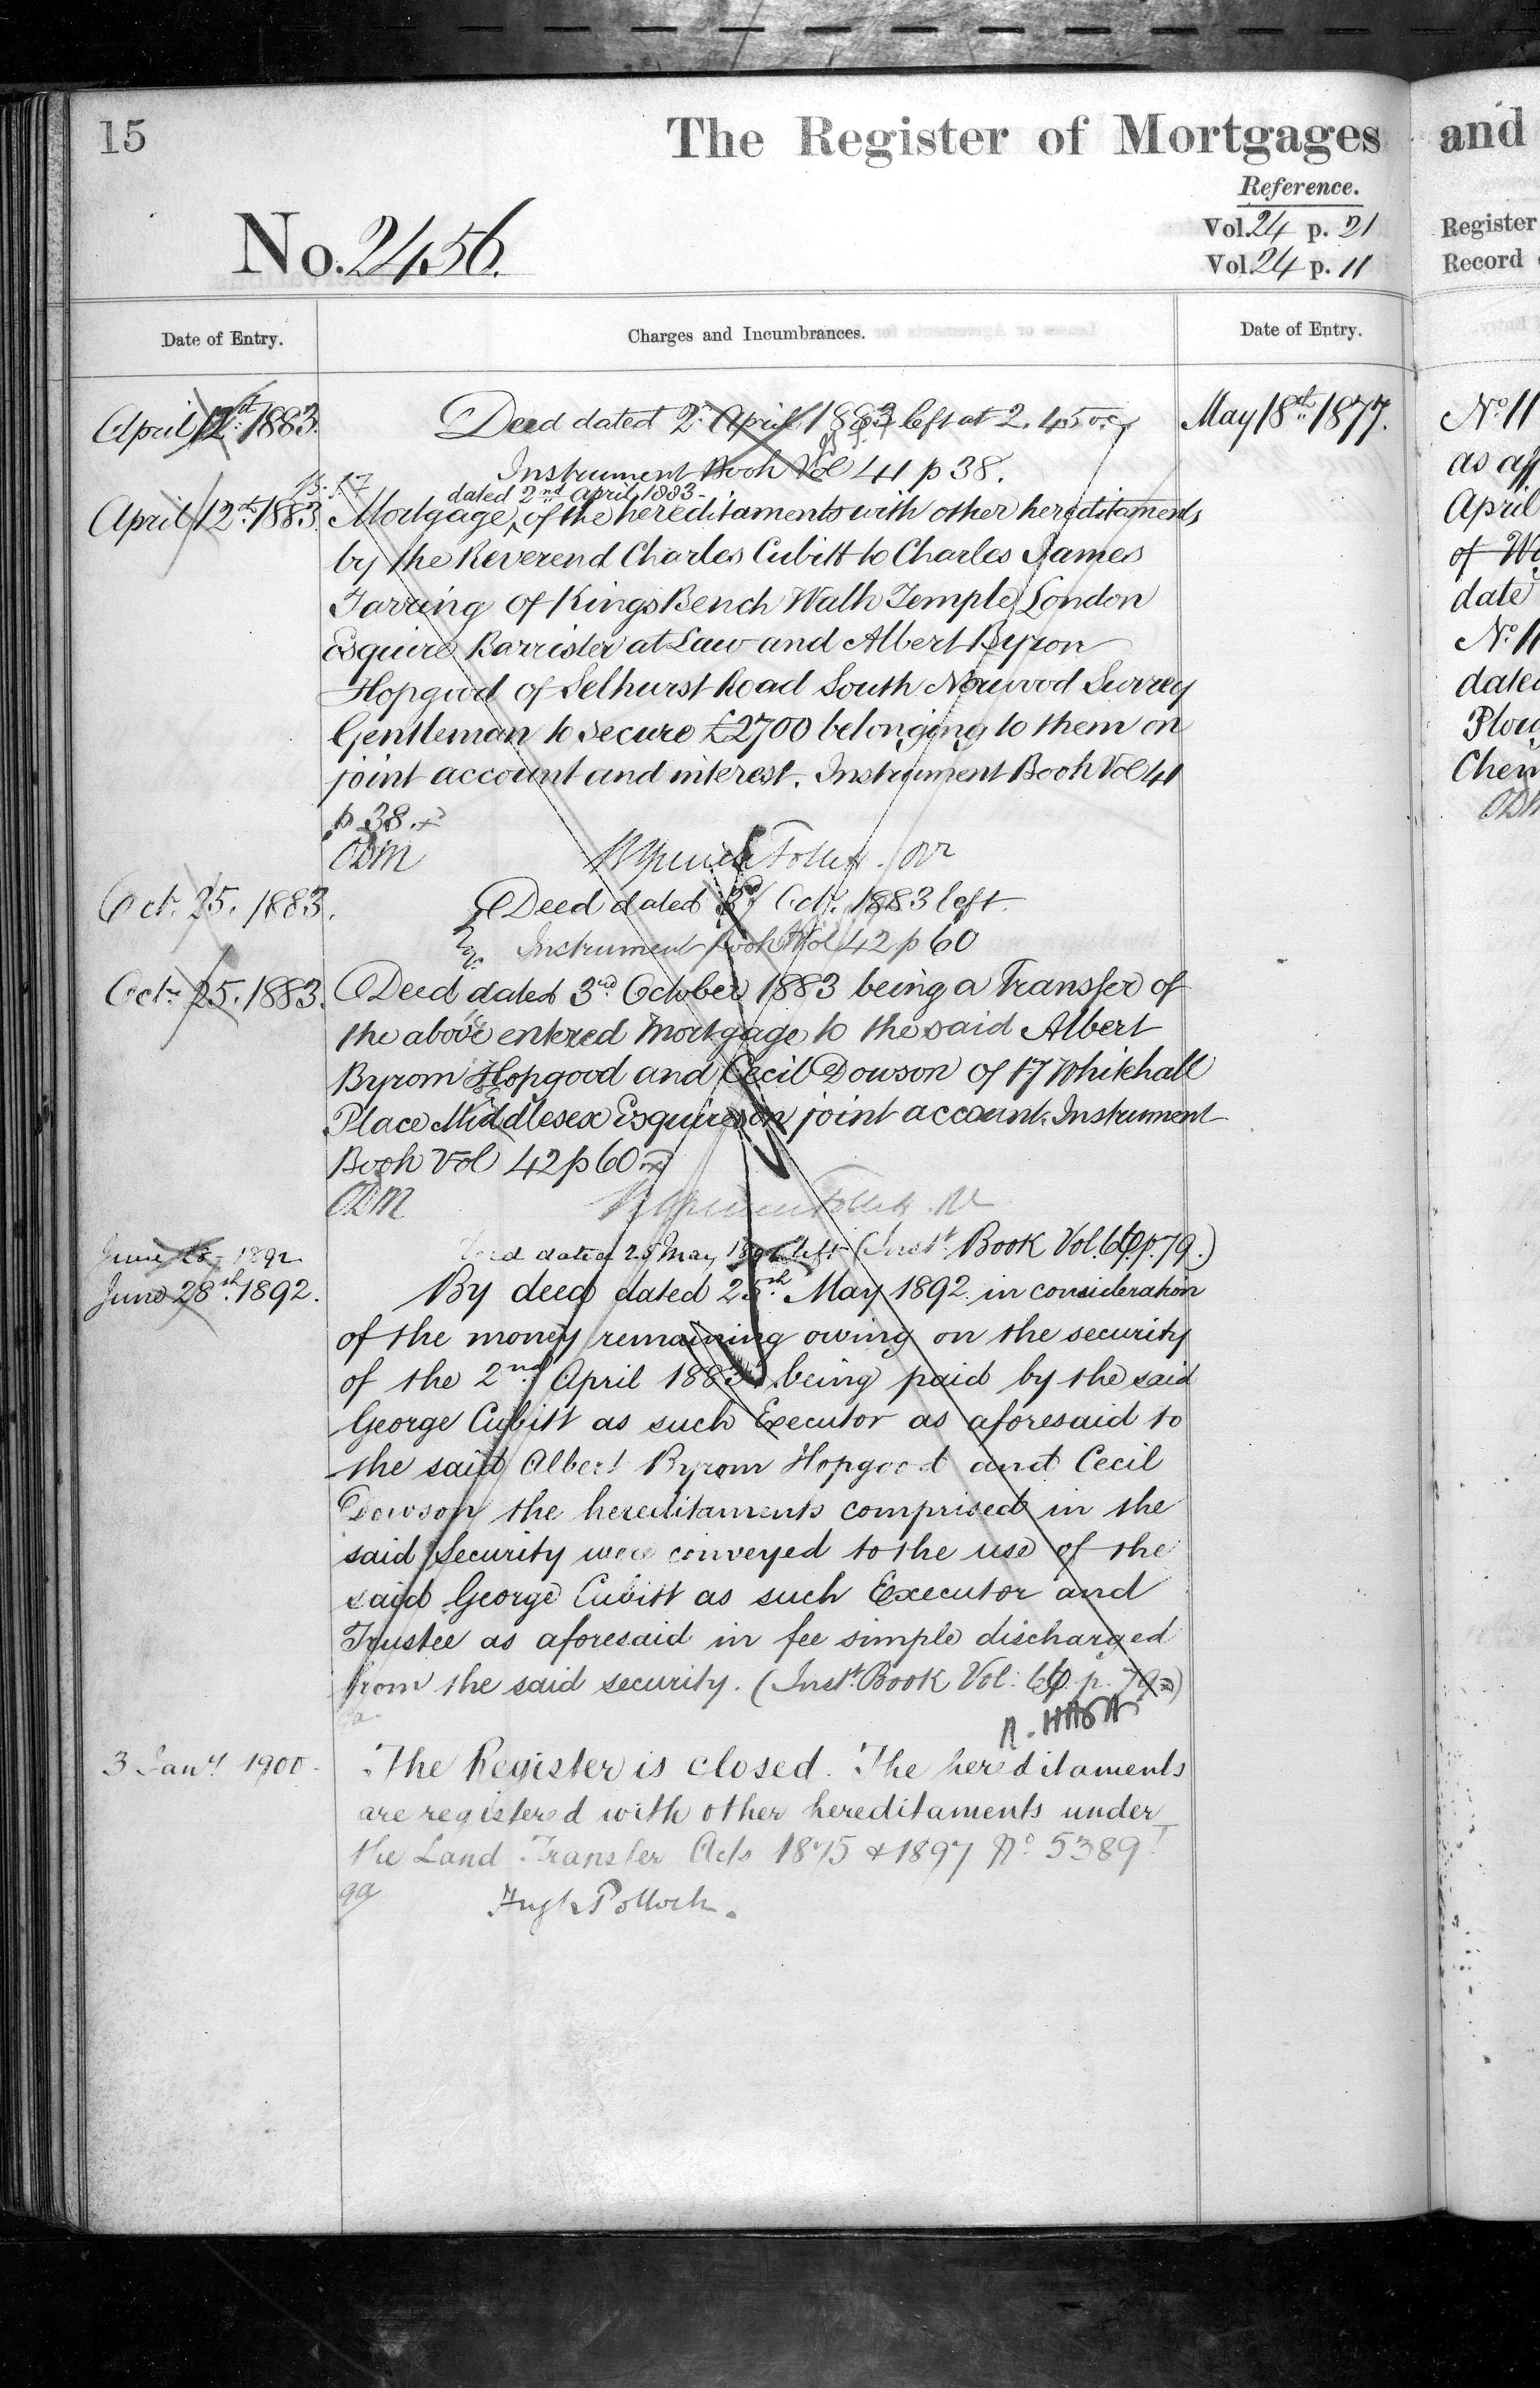 15
The Register of Mortgages and
Reference.
No. 2456.
Vol. 24 p. 21
Vol. 24 p. 11
Register
Record
Date of Entry.
Charges and Incumbrances.
Date of Entry.
April 12th 1883.
Deed dated 2 April 1883 left at 2.45
May 18th 1877.
Instrument Book Vol 41 p 38.
dated 2nd April 1883
April 12th 1883.
Mortgage of the hereditaments with other hereditaments
by the Reverend Charles Cubitt to Charles James
Tarring of Kings Bench Walk Temple London
Esquire Barrister at Law and Albert Byron
Hopgood of Selhurst Road South Norwood Surrey
Gentleman to secure £2700 belonging to them on
joint account and interest. Instrument Book Vol 41
p 38.
Oct. 25. 1883.
Deed dated 3rd Oct. 1883 left
Instrument Book Vol 42 p 60
Oct. 25. 1883.
Deed dated 3rd October 1883 being a Transfer of
the above entered Mortgage to the said Albert
Byrom Hopgood and Cecil Dowson of 17 Whitehall
Place Middlesex Esquires on joint account. Instrument
Book Vol 42 p 60
June 28 1892
Deed dated 25 May 1892 left (Inst. Book Vol. 66 p. 79.)
June 28th 1892.
By deed dated 25th May 1892 in consideration
of the money remaining owing on the security
of the 2nd April 1883 being paid by the said
George Cubitt as such Executor as aforesaid to
the said Albert Byrom Hopgood and Cecil
Dowson the hereditaments comprised in the
said Security were conveyed to the use of the
said George Cubitt as such Executor and
Trustee as aforesaid in fee simple discharged
from the said security. (Inst. Book Vol. 66 p. 79)
3 Jany 1900.
The Register is closed. The hereditaments
are registered with other hereditaments under
the Land Transfer Acts 1875 & 1897 No 5389
Hugh Pollock.
No 11
as aff
April
date
No 11
dated